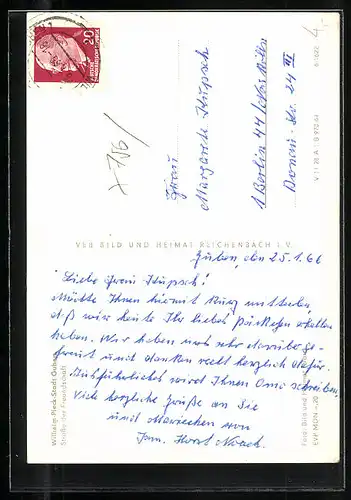 20
4.
8-1022
V 11 28 A 1 B 972/64
x 756/
Frau
Margarete Kupsch
1 Berlin 44/Neukölln
Donau-Str. 24 III
VEB BILD UND HEIMAT REICHENBACH I. V.
Guben, den 25.1.66
Liebe Frau Kupsch!
Möchte Ihnen hiermit kurz mitteilen,
daß wir heute Ihr liebes Päckchen erhalten
haben. Wir haben uns sehr darüber ge-
freut und danken recht herzlich dafür.
Ausführliches wird Ihnen Omi schreiben.
Viele herzliche Grüße an Sie
und Mariechen von
Fam. Horst Noack.
Wilhelm-Pieck-Stadt Guben
Straße der Freundschaft
Foto: Bild und Heimat
EVP MDN -,20